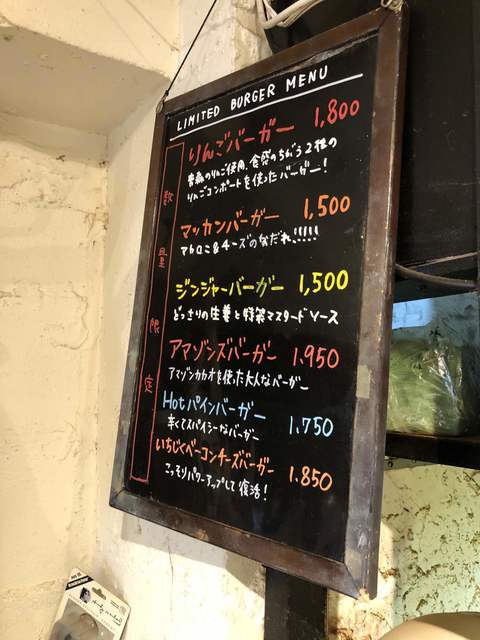 LIMITED BURGER MENU
数量限定
りんごバーガー 1,800
青森のりんご使用、食感のちがう2種の
りんごコンポートを使ったバーガー!
マッカンバーガー 1,500
マカロニ&チーズのなだれ、!!!!!
ジンジャーバーガー 1,500
どっさりの生姜と特製マスタードソース
アマゾンズバーガー 1.950
アマゾンカカオを使った大人なバーガー
Hotパインバーガー 1.750
辛くてスパイシーなバーガー
いちじくベーコンチーズバーガー 1.850
こっそりパワーアップして復活!